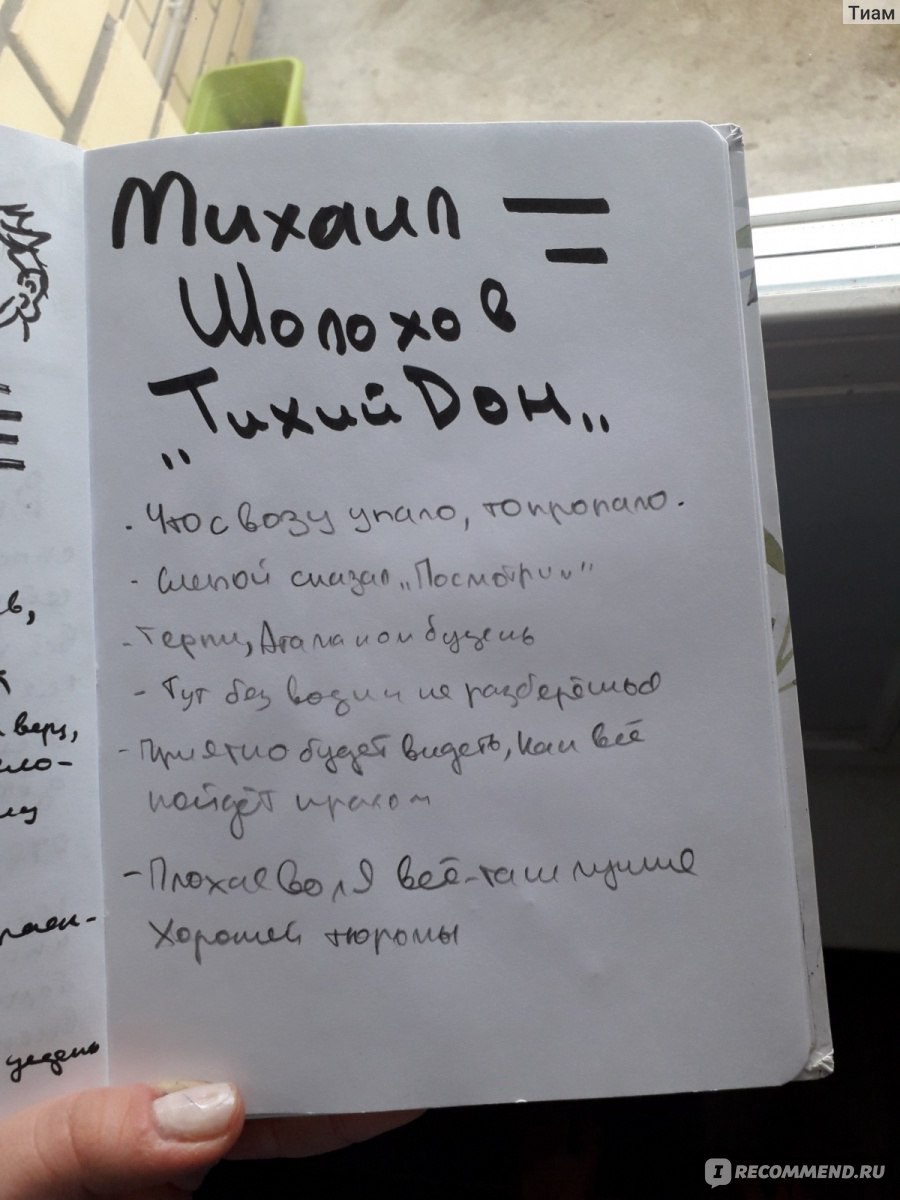 Тиам
Михаил
Шолохов
„Тихий Дон„
. Что с возу упало, то пропало.
- Слепой сказал „Посмотрим“
- Терпи, Атаманом будешь
- Тут без водки не разберёшься
- Приятно будет видеть, как всё
пойдёт прахом
- Плохае воля всё-таки лучше
хорошей тюрьмы
в,
верц,
ло-
раск-
IRECOMMEND.RU